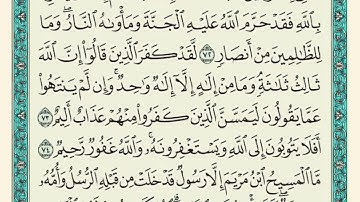 بِٱللَّهِ فَقَدْ حَرَّمَ ٱللَّهُ عَلَيْهِ ٱلْجَنَّةَ وَمَأْوَىٰهُ ٱلنَّارُ ۖ وَمَا
لِلظَّـٰلِمِينَ مِنْ أَنصَارٍ ٧٢ لَّقَدْ كَفَرَ ٱلَّذِينَ قَالُوٓا۟ إِنَّ ٱللَّهَ
ثَالِثُ ثَلَـٰثَةٍ ۘ وَمَا مِنْ إِلَـٰهٍ إِلَّآ إِلَـٰهٌ وَٰحِدٌ ۚ وَإِن لَّمْ يَنتَهُوا۟
عَمَّا يَقُولُونَ لَيَمَسَّنَّ ٱلَّذِينَ كَفَرُوا۟ مِنْهُمْ عَذَابٌ أَلِيمٌ ٧٣
أَفَلَا يَتُوبُونَ إِلَى ٱللَّهِ وَيَسْتَغْفِرُونَهُۥ ۚ وَٱللَّهُ غَفُورٌ رَّحِيمٌ ٧٤
مَّا ٱلْمَسِيحُ ٱبْنُ مَرْيَمَ إِلَّا رَسُولٌ قَدْ خَلَتْ مِن قَبْلِهِ ٱلرُّسُلُ وَأُمُّهُۥ